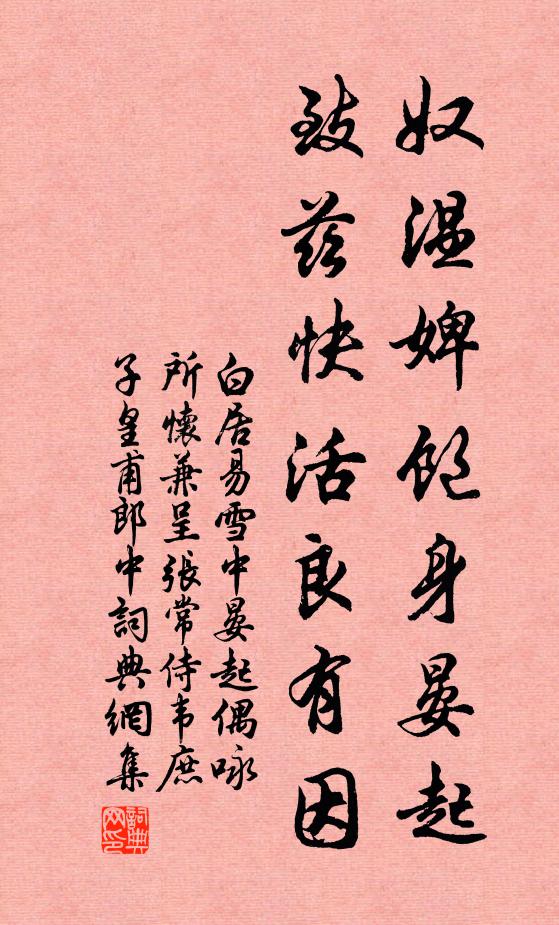 奴温婢飽身晏起
致茲快活良有因
白居易雪中晏起偶咏
所懷兼呈張常侍韦庶
子皇甫郎中詞典網集
詞典网印